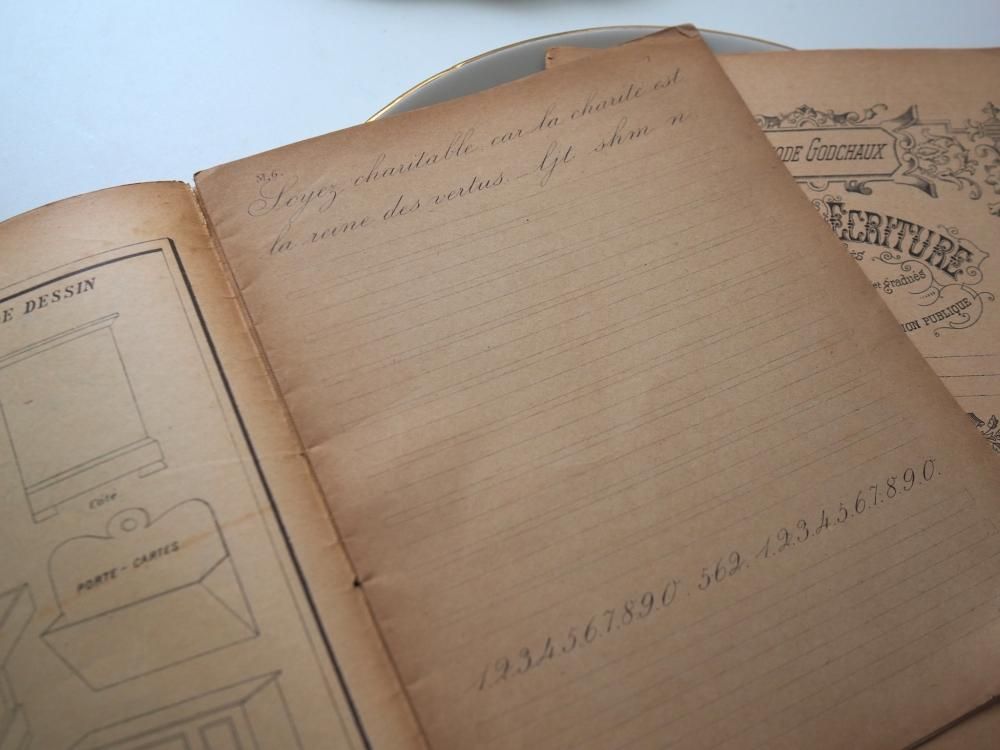 E DESSIN
Côté
PORTE - CARTES
M, 6.
Soyez charitable car la charité est
la reine des vertus. - ljt shm n
1.2.3.4.5.6.7.8.9.0. 562. 1.2.3.4.5.6.7.8.9.0.
ODE GODCHAUX
ECRITURE
et gradués
ION PUBLIQUE